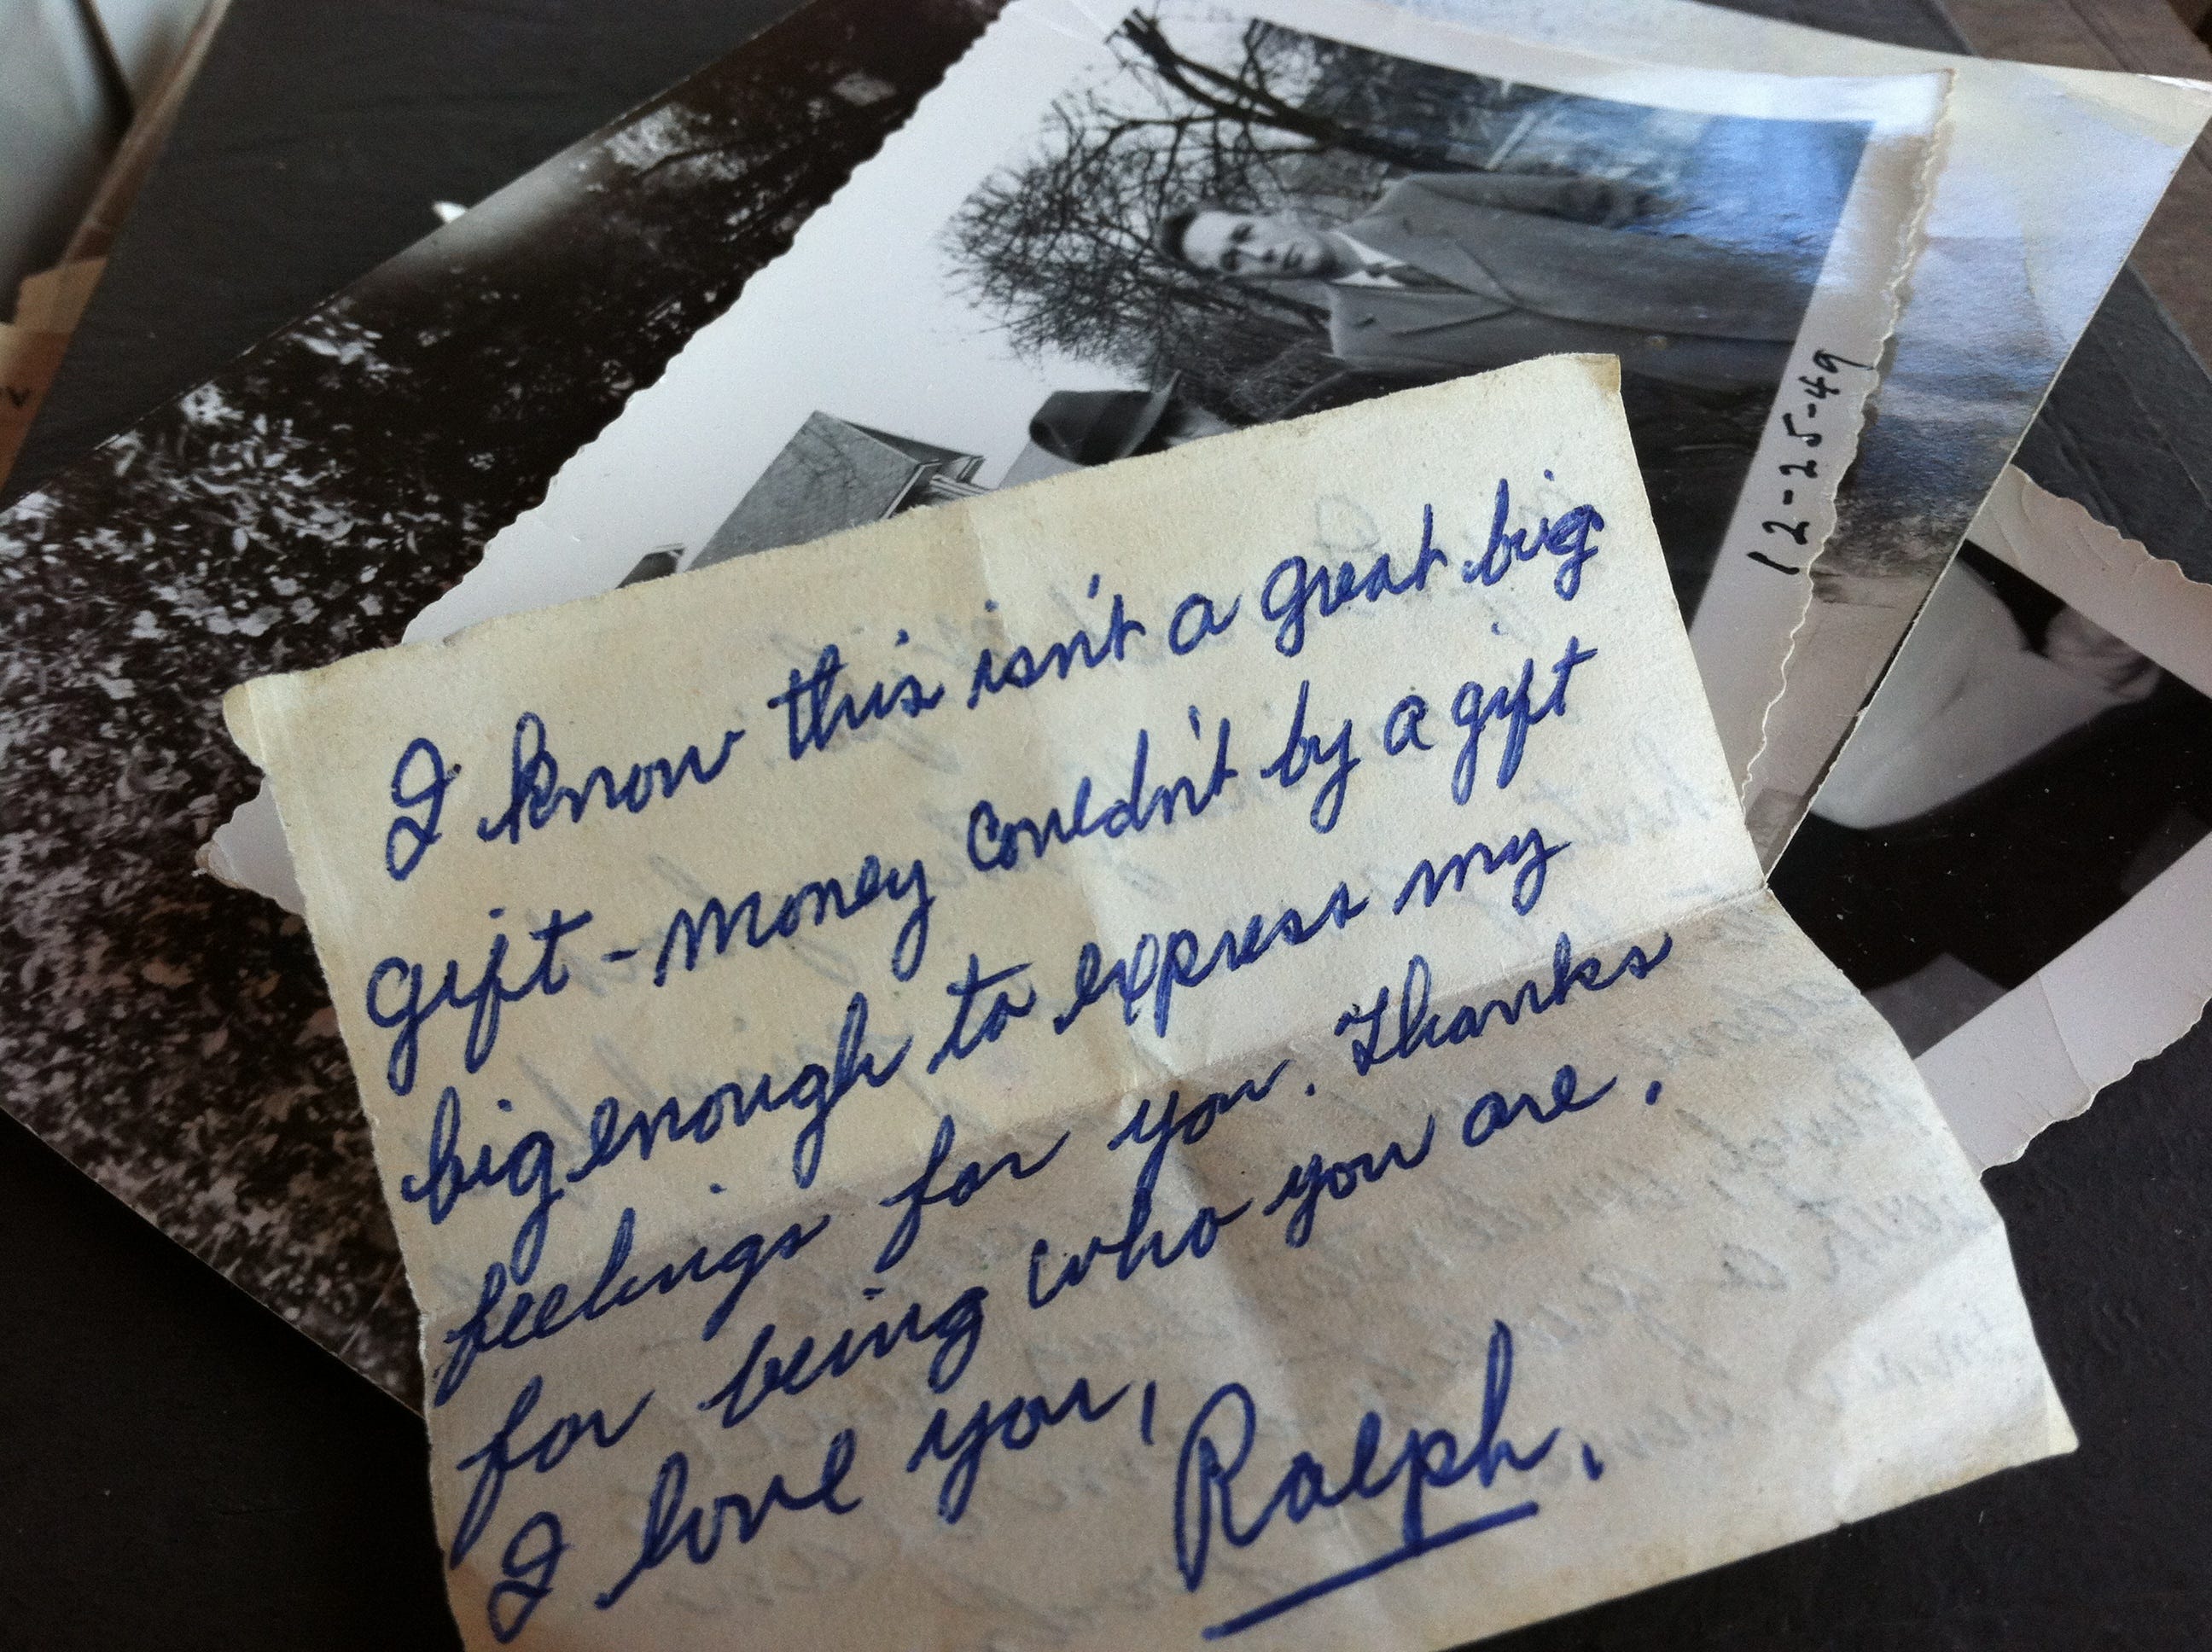 12-25-49
I know this isn't a great big
gift - money couldn't by a gift
big enough to express my
feelings for you. Thanks
for being who you are.
I love you,
Ralph.